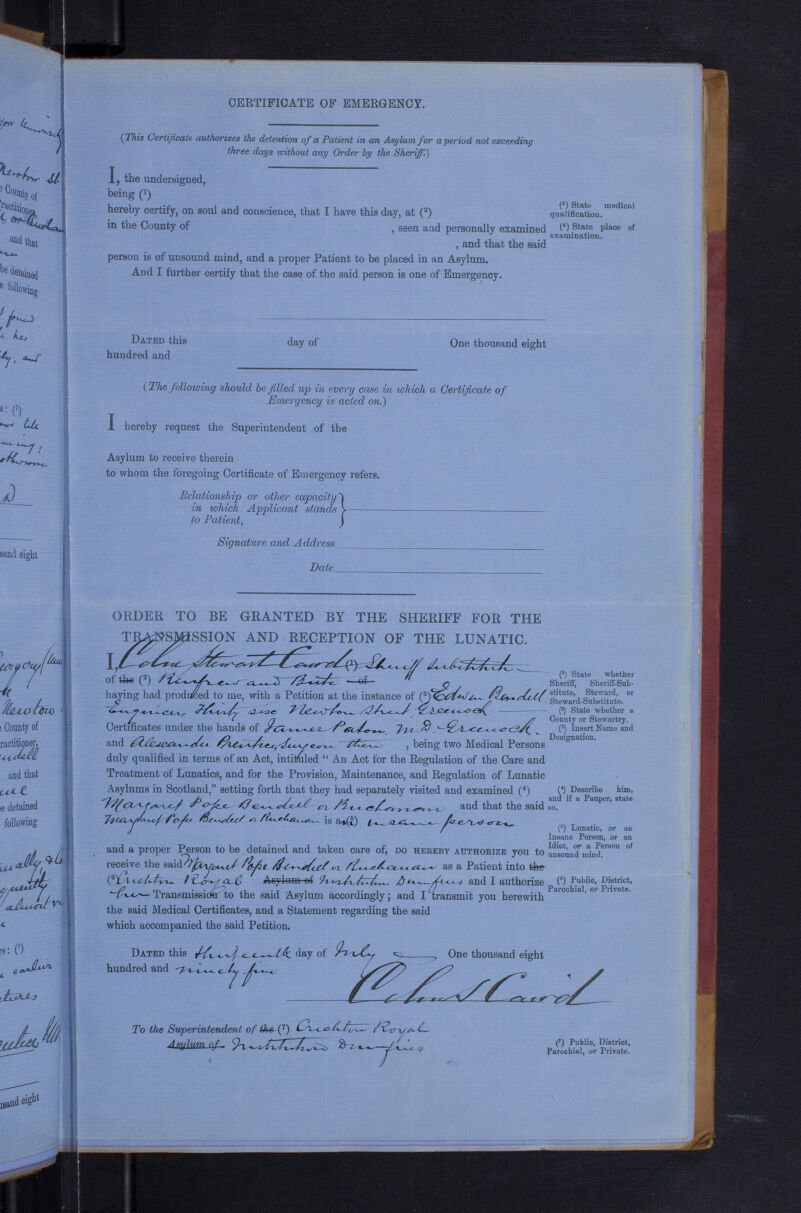 CERTIFICATE OF EMERGENCY.
(This Certificate authorizes the detention of a Patient in an Asylum for a period not exceeding
three days without any Order by the Sheriff.)
I, the undersigned,
being (¹)
hereby certify, on soul and conscience, that I have this day, at (²)
in the County of , seen and personally examined
, and that the said
person is of unsound mind, and a proper Patient to be placed in an Asylum.
And I further certify that the case of the said person is one of Emergency.
(¹) State medical
qualification.
(²) State place of
examination.
DATED this day of One thousand eight
hundred and
(The following should be filled up in every case in which a Certificate of
Emergency is acted on.)
I hereby request the Superintendent of the
Asylum to receive therein
to whom the foregoing Certificate of Emergency refers.
Relationship or other capacity
in which Applicant stands
to Patient,
Signature and Address
Date
ORDER TO BE GRANTED BY THE SHERIFF FOR THE
TRANSMISSION AND RECEPTION OF THE LUNATIC.
I, Colin Stewart Caird (¹) Sheriff Substitute
of the (²) Renfrew and Bute of
having had produced to me, with a Petition at the instance of (³) Edwin Bendell
Engineer, Thirty six Newton Street Greenock
Certificates under the hands of James Paton, M.D. Greenock.
and Alexander Prentice, Surgeon there , being two Medical Persons
duly qualified in terms of an Act, intituled “ An Act for the Regulation of the Care and
Treatment of Lunatics, and for the Provision, Maintenance, and Regulation of Lunatic
Asylums in Scotland,” setting forth that they had separately visited and examined (⁴)
Margaret Pope Bendell or Buchanan and that the said
Margaret Pope Bendell or Buchanan is a (⁵) insane person
and a proper Person to be detained and taken care of, DO HEREBY AUTHORIZE you to
receive the said Margaret Pope Bendell or Buchanan as a Patient into the
(⁶) Crichton Royal Asylum of Institution Dumfries and I authorize
her Transmission to the said Asylum accordingly; and I transmit you herewith
the said Medical Certificates, and a Statement regarding the said
which accompanied the said Petition.
(¹) State whether
Sheriff, Sheriff-Sub-
stitute, Steward, or
Steward-Substitute.
(²) State whether a
County or Stewartry.
(³) Insert Name and
Designation.
(⁴) Describe him,
and if a Pauper, state
so.
(⁵) Lunatic, or an
Insane Person, or an
Idiot, or a Person of
unsound mind.
(⁶) Public, District,
Parochial, or Private.
DATED this thirteenth day of July One thousand eight
hundred and ninety five
Colin S Caird
To the Superintendent of the (⁷) Crichton Royal
Asylum of Institution Dumfries
(⁷) Public, District,
Parochial, or Private.